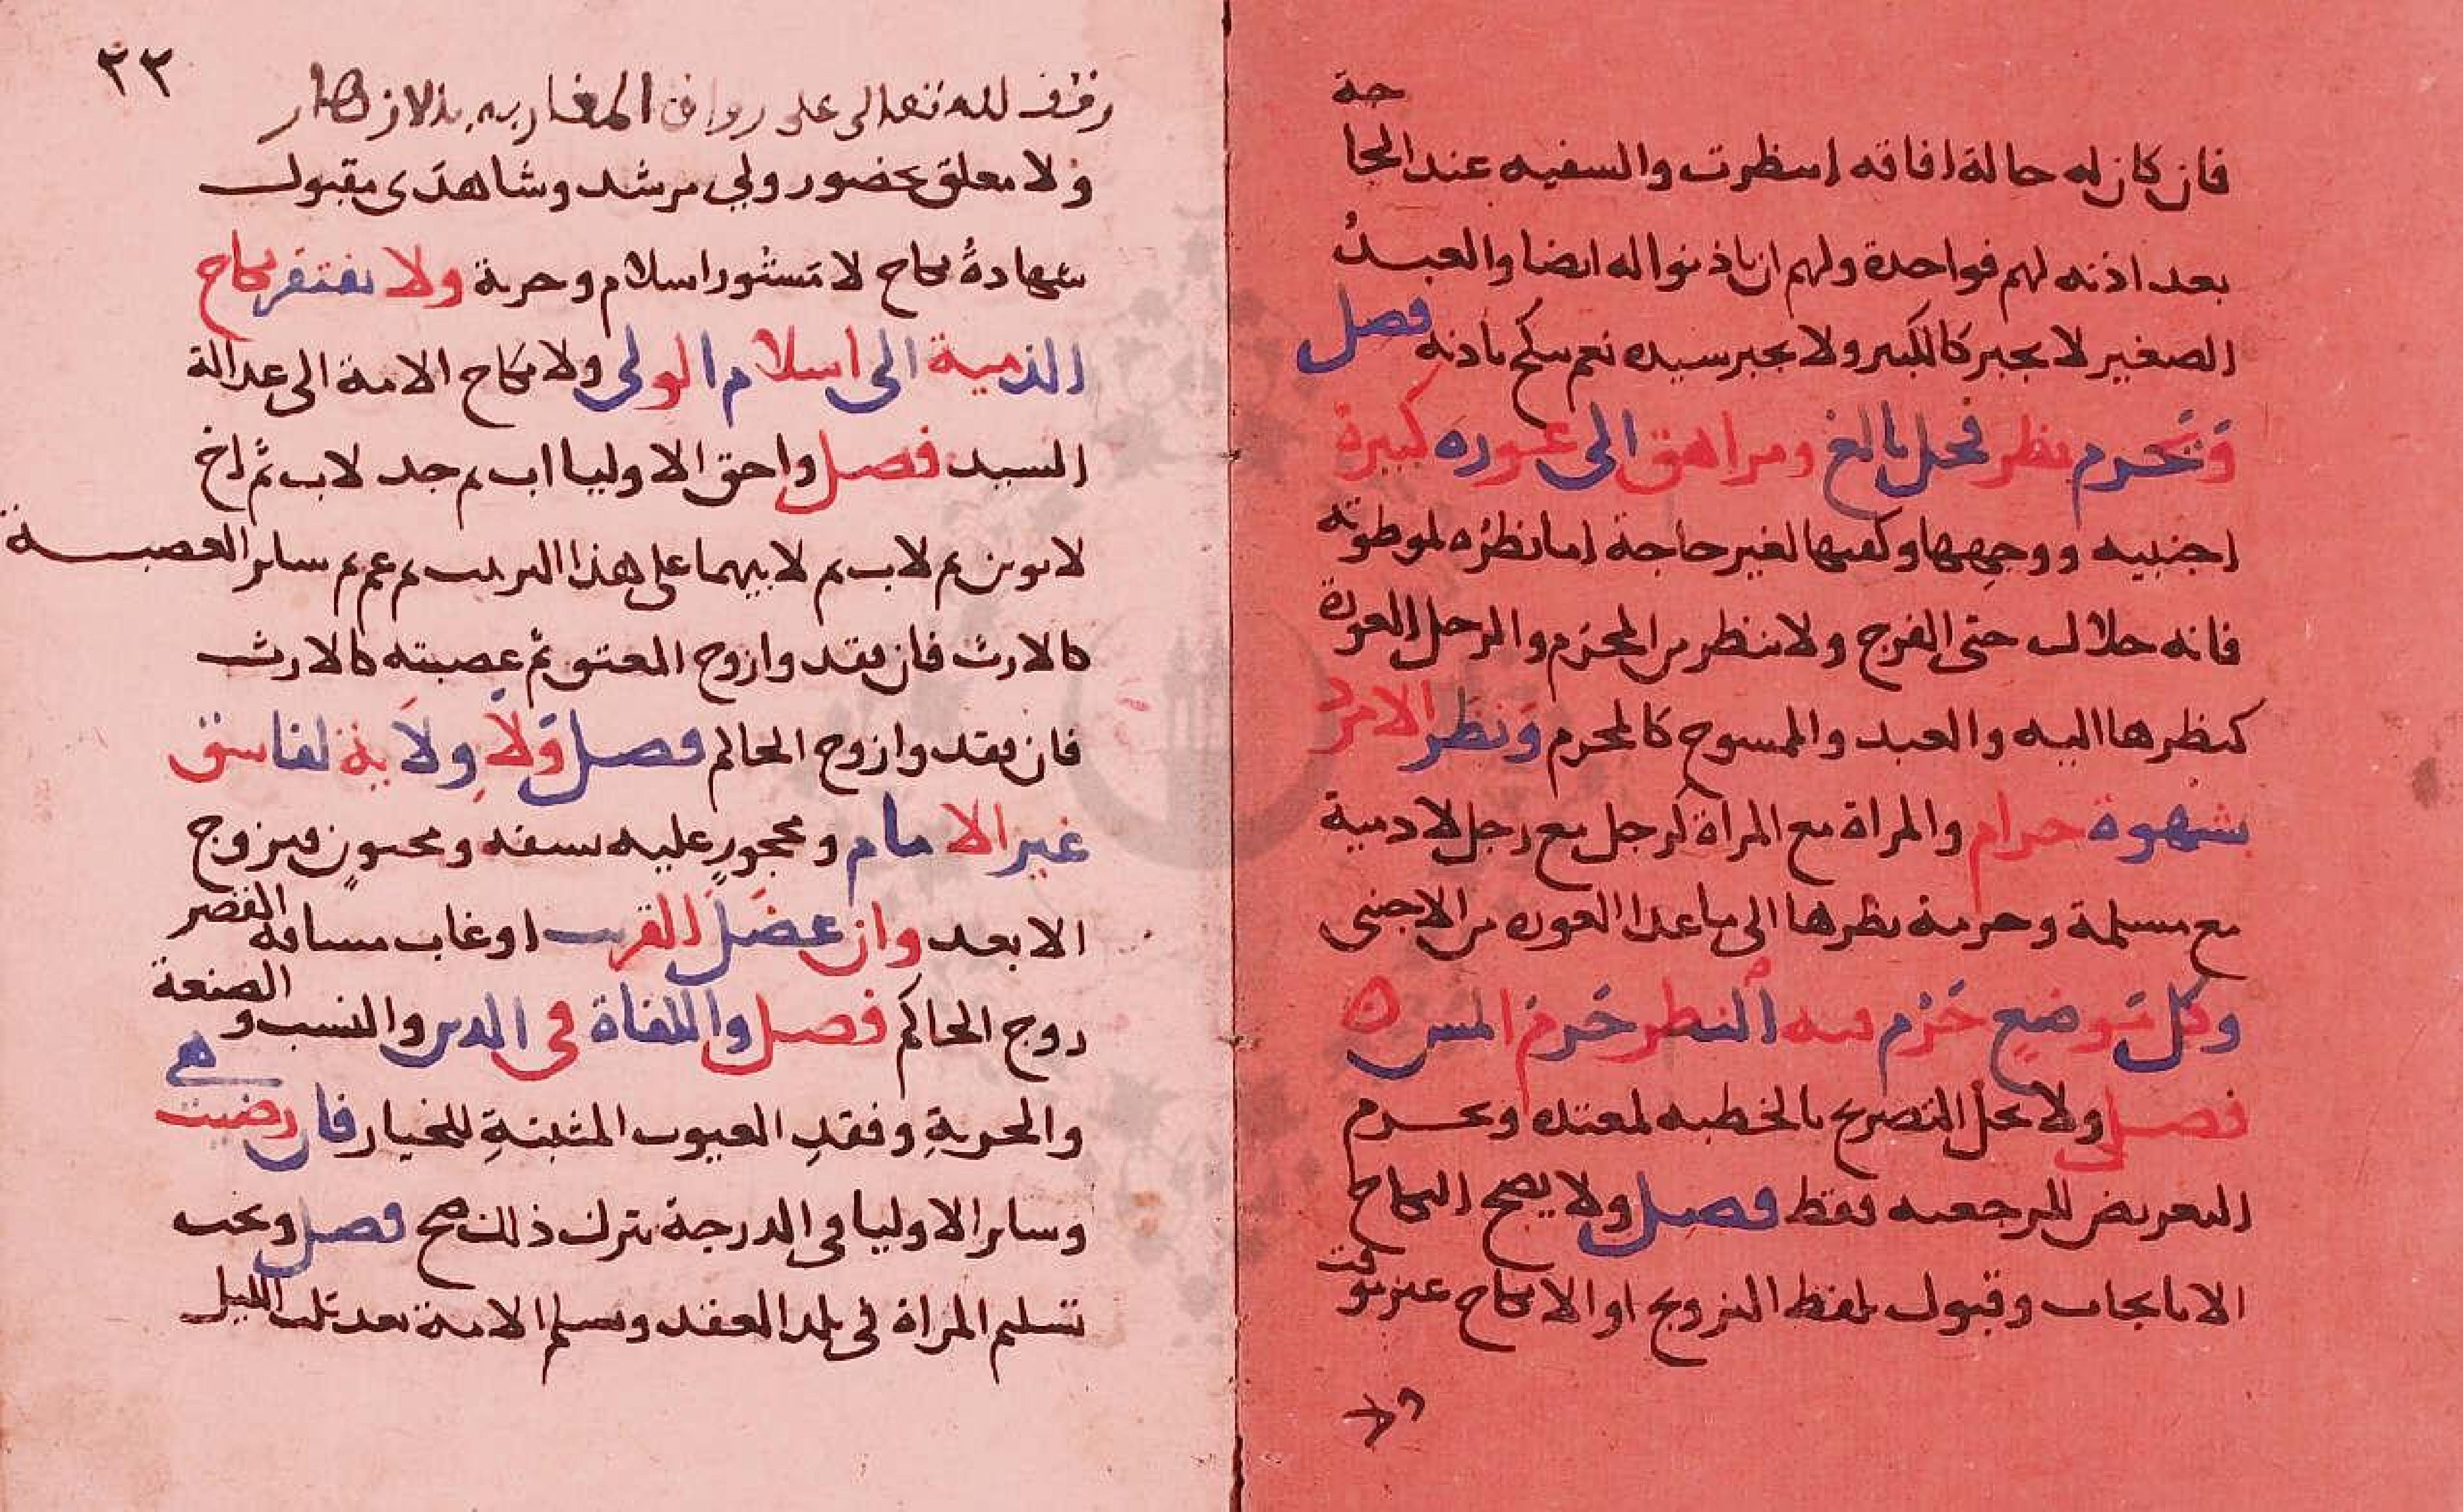 فان كان له حالة افاقه انتظرت والسفيه عند الحا
جة
بعد اذنه لهم فواحدة ولهم ان ياذنوا له ايضا والعبدُ
الصغير لا يجبر كالكبير ولا يجبر سيده نعم ينكح باذنه فصل
وَيَحرم نظر فحل بالغ ومراهق الى عوره كبيرة
اجنبيه ووجهها وكفيها لغير حاجة اما نظرُه لموطوته
فانه حلال حتى الفرج ولا ينظر من المحرَم والرجل العورة
كنظرها اليه والعبد والممسوح كالمحرم وَنظَر الامرد
بشهوة حرام والمراة مع المراة كرجل مع رجل لا دمية
مع مسلمة وحرمة نظرها الى ما عدا العوره من الاجنبى
وكل مَوضع حَرُم فيه النظر حَرم المس ٥
فصل ولا يحل التصريح بالخطبه لمعتده ويحرم
التعريض للرجعيه فقط فصل ولا يصح النكاح
الا بايجاب وقبول بلفظ التزويج او الانكاح غير موقت
ولا
٢٣
وقف لله تعالى على رواق المغاربه بالازهار
ولا معلق بحضور ولي مرشد وشاهدَى مقبول
شهادةُ نكاح لا مَستور اسلام وحرية ولا يفتقر نكاح
الذمية الى اسلام الولى ولا نكاح الامة الى عدالة
السيد فصل واحق الاوليا اب ثم جد لاب ثم اخ
لابوين ثم لاب ثم لابيهما على هذا الترتيب ثم عم ثم ساير العصبة
كالارث فان فقدوا زوج المعتق ثم عصبته كالارث
فان فقدوا زوج الحاكم فصل وَلَا وِلَاية لفاسق
غير الامام ومحجورٍ عليه بسفه ومجنونٍ فيزوج
الابعد وان عضَلَ القريب او غاب مسافة القصر
زوج الحاكم فصل والكفاة فى الدين والنسب والصنعة
هي
والحريةِ وفقدِ العيوب المثبتةِ للخيار فان رضيت
وساير الاوليا فى الدرجة بترك ذلك صح فصل ويجب
تسليم المراة فى بلد العقد وتسلم الامة بعد ثلث الليل